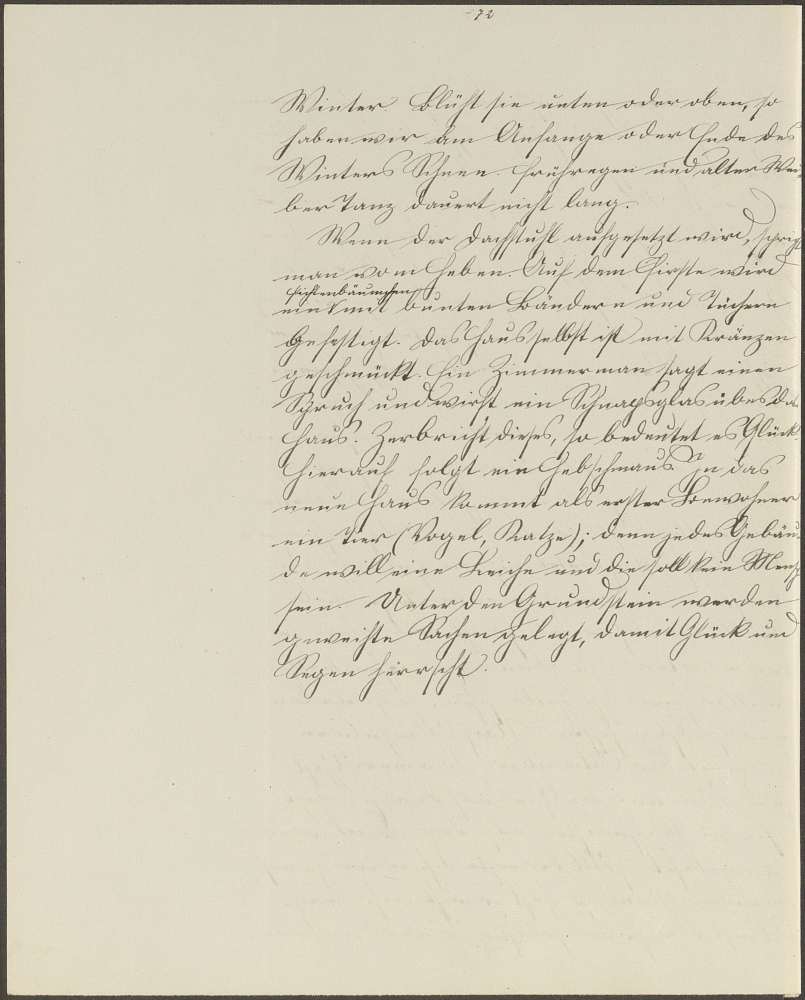 72
Winter. Blüht sie unten oder oben, so
haben wir am Anfange oder Ende des
Winters Schnee. Frühregen und alter Wei-
ber Tanz dauert nicht lang.
Wenn der Dachstuhl aufgesetzt wird, spricht
man vom Heben. Auf dem Firste wird
Fichtenbäumchen
ein mit bunten Bändern und Tüchern
Gefestigt. Das Haus selbst ist mit Kränzen
geschmückt. Ein Zimmerman sagt einen
Spruch und wirft ein Schnapsglas übes da
Haus. Zerbricht dieses, so bedeutet es Glück.
Hierauf folgt ein Hebschmaus. In das
neue Haus kommt als erster Bewohner
ein Tier (Vogel, Katze); denn jedes Gebäu-
de will eine Leiche und die soll kein Mensch
sein. Unter den Grundstein werden
geweihte Sachen gelegt, damit Glück und
Segen herrscht.